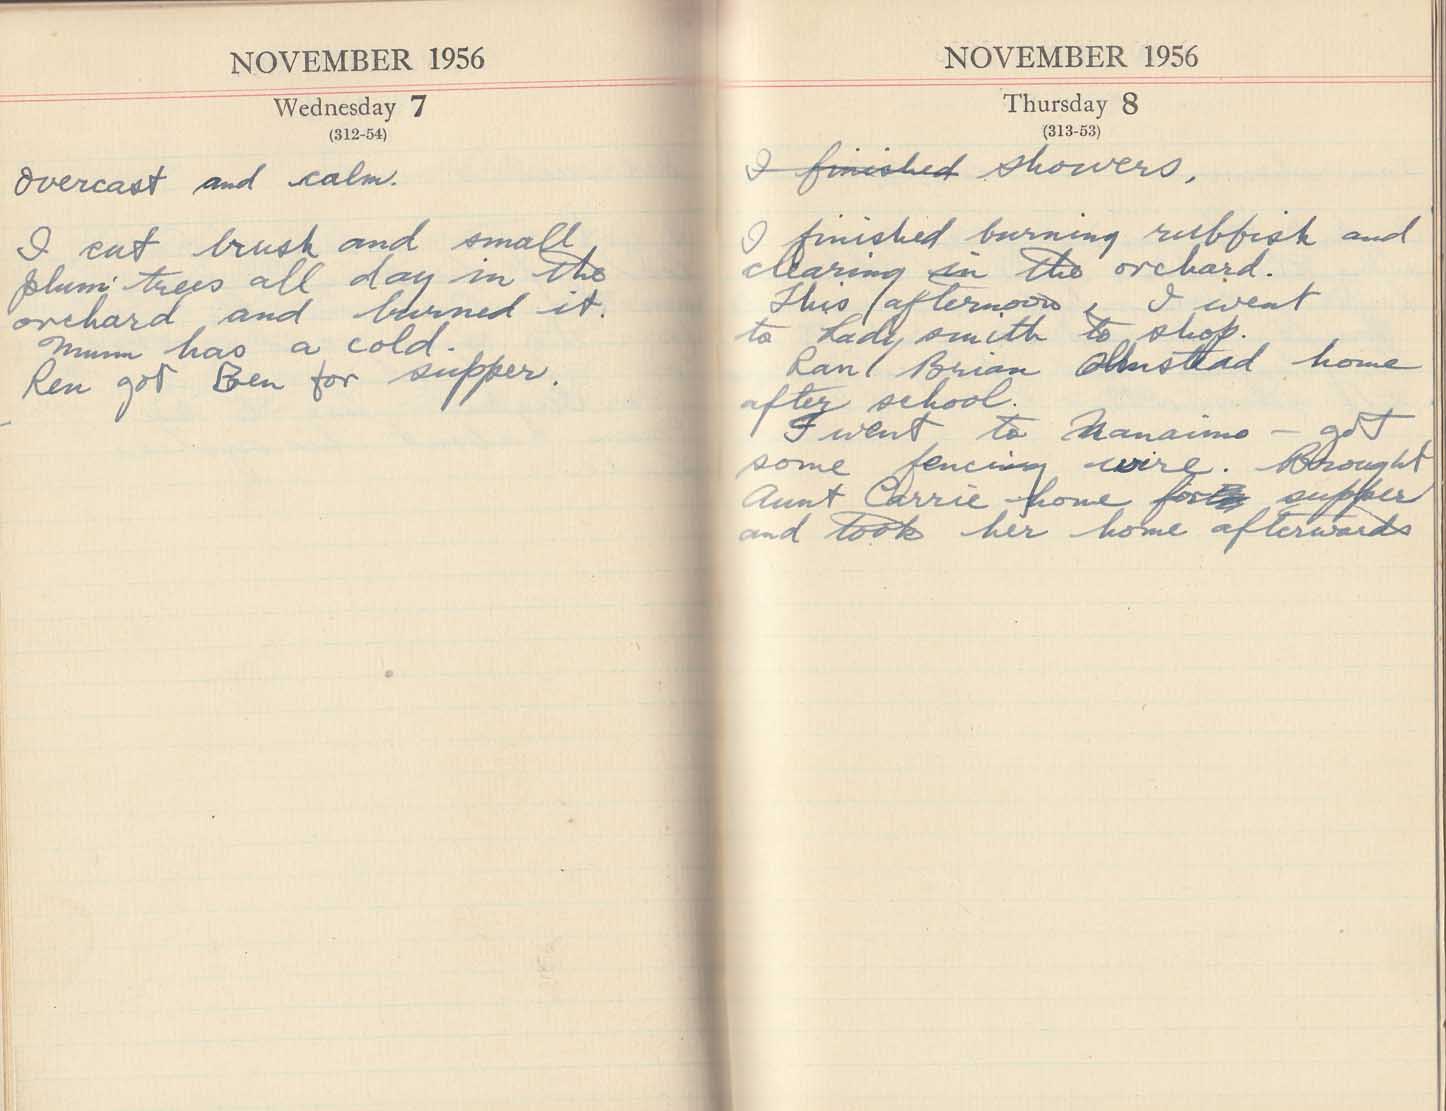 NOVEMBER 1956
Wednesday 7
(312-54)
Overcast and calm.
I cut brush and small
plum trees all day in the
orchard and burned it.
Mum has a cold.
Ren got Ben for supper.
NOVEMBER 1956
Thursday 8
(313-53)
I finished showers,
I finished burning rubbish and
clearing in the orchard.
This afternoon, I went
to Ladysmith to shop.
Ran Brian Olmstead home
after school.
I went to Nanaimo - got
some fencing wire. Brought
Aunt Carrie home for supper
and took her home afterwards